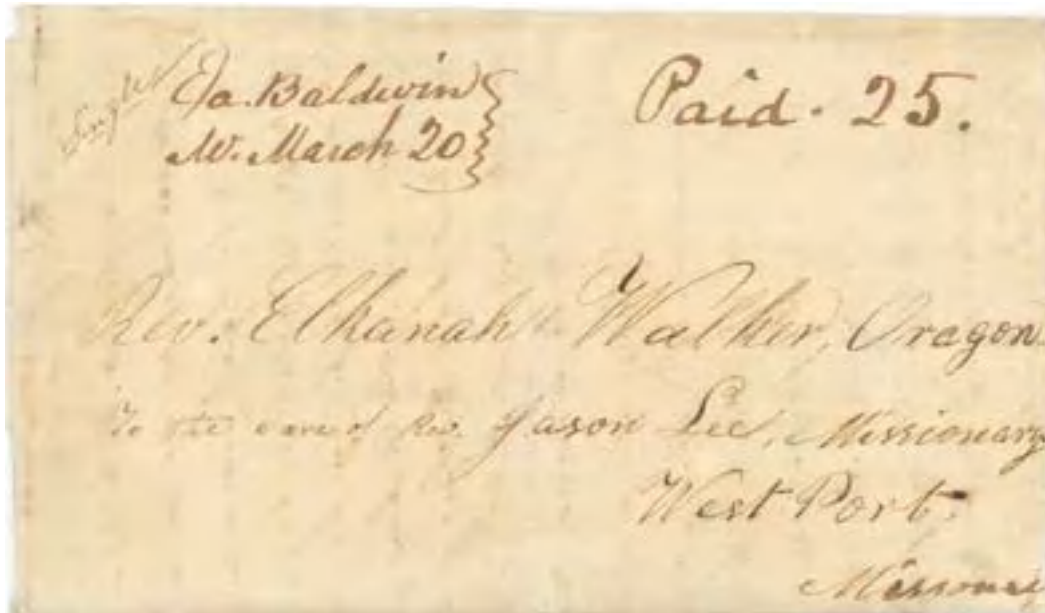 Single
Ea. Baldwin
Me. March 20
Paid. 25.
Rev. Elkanah Walker, Oragon
To the care of Rev. Jason Lee, Missionary
West Port,
Missouri